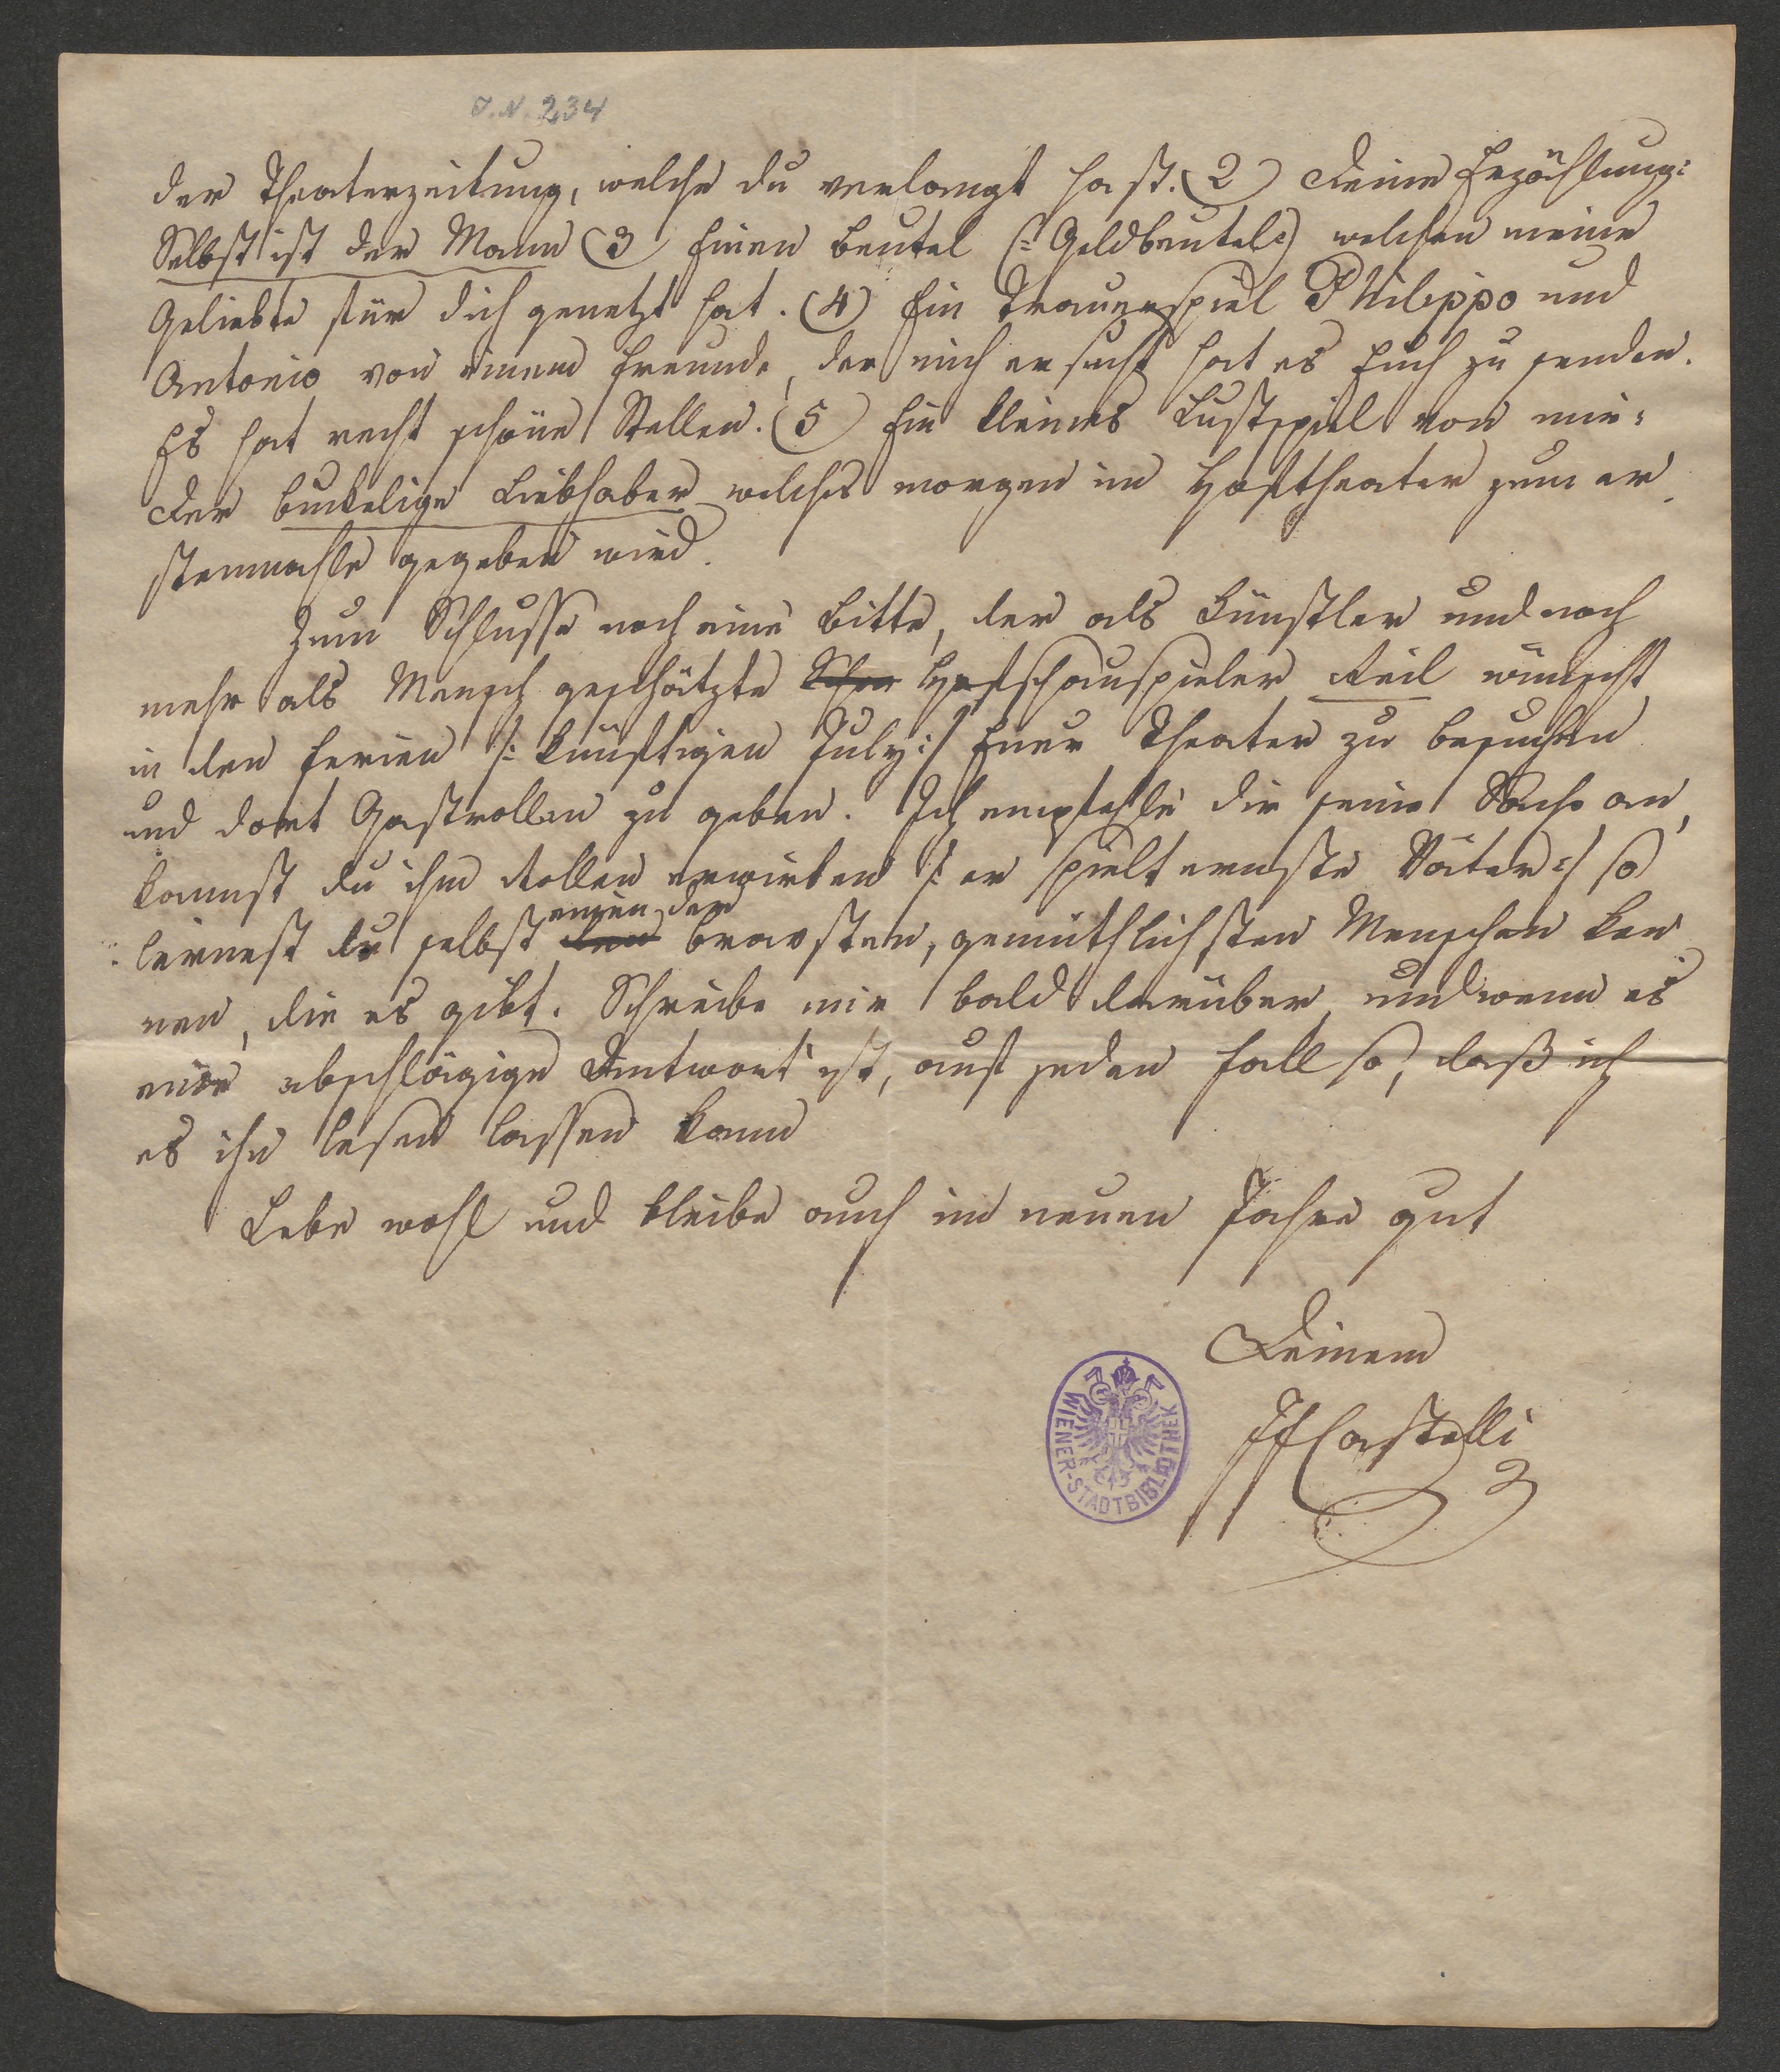 I.N. 234
der Theaterzeitung, welche du verlangt hast. (2) Deine Erzählung:
Selbst ist der Mann (3) Einen Beutel (: Geldbeutel :) welchen meine
Geliebte für dich genetzt hat. (4) Ein Trauerspiel Philippo und
Antonio von einem Freunde, der mich ersucht hat es Euch zu senden.
Es hat recht schöne Stellen. (5) Ein kleines Lustspiel von mir:
Der buckelige Liebhaber welches morgen im Hoftheater zum er
stenmahle gegeben wird.
Zum Schlusse noch eine Bitte, der als Künstler und noch
mehr als Mensch geschätzte Schau Hofschauspieler Reil wünscht
in den Ferien /: künftigen July :/ Euer Theater zu besuchen
und dort Gastrollen zu geben. Ich empfehle dir seine Sache an,
kannst du ihm Rollen erwirken /: er spielt ernste Väter :/ so
lernest du selbst den einen der bravsten, gemüthlichsten Menschen ken
nen, die es gibt. Schreibe mir bald darüber und wenn es
eine abschlägige Antwort ist, auf jeden Fall so, daß ich
es ihn lesen lassen kann
Lebe wohl und bleibe auch im neuen Jahre gut
Deinem
IFCastelli
WIENER-STADTBIBLIOTHEK